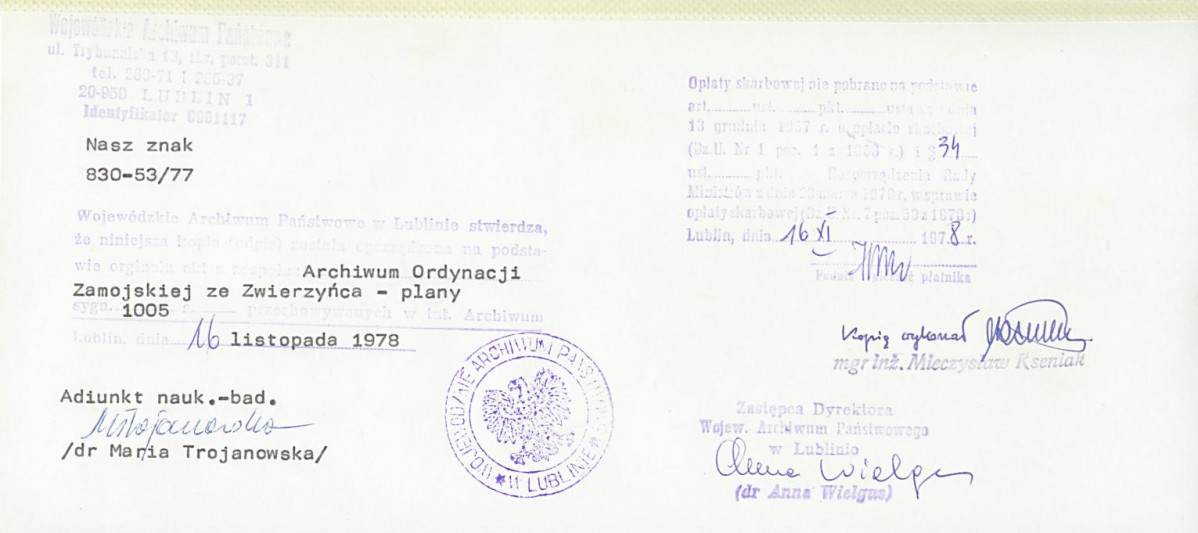 Wojewódzkie Archiwum Państwowe
ul. Trybunalska 13, skr. poczt. 311
tel. 280-71 i 285-37
20-950 LUBLIN 1
Identyfikator 0001117
Nasz znak
830-53/77
Wojewódzkie Archiwum Państwowe w Lublinie stwierdza,
że niniejsza kopia (odpis) została sporządzona na podsta-
wie orginału akt z zespołu Archiwum Ordynacji
Zamojskiej ze Zwierzyńca - plany
sygn. 1005 przechowywanych w tut. Archiwum
Lublin, dnia 16 listopada 1978
Adiunkt nauk.-bad.
MTrojanowska
/dr Maria Trojanowska/
WOJEWÓDZKIE ARCHIWUM PAŃSTWOWE * W LUBLINIE *
Opłaty skarbowej nie pobrano na podstawie
art. ust. pkt. ustawy z dnia
13 grudnia 1957 r. o opłacie skarbowej
(Dz.U. Nr 1 poz. 1 z 1958 r.) i § 34
ust. pkt. Rozporządzenia Rady
Ministrów z dnia marca 1970 r. w sprawie
opłaty skarbowej (Dz.U. Nr. 7 poz. z 1970 r)
Lublin, dnia 16 XI 1978 r.
płatnika
Kopię wykonał
mgr inż. Mieczysław Kseniak
Zastępca Dyrektora
Wojew. Archiwum Państwowego
w Lublinie
Anna Wielgus
(dr Anna Wielgus)